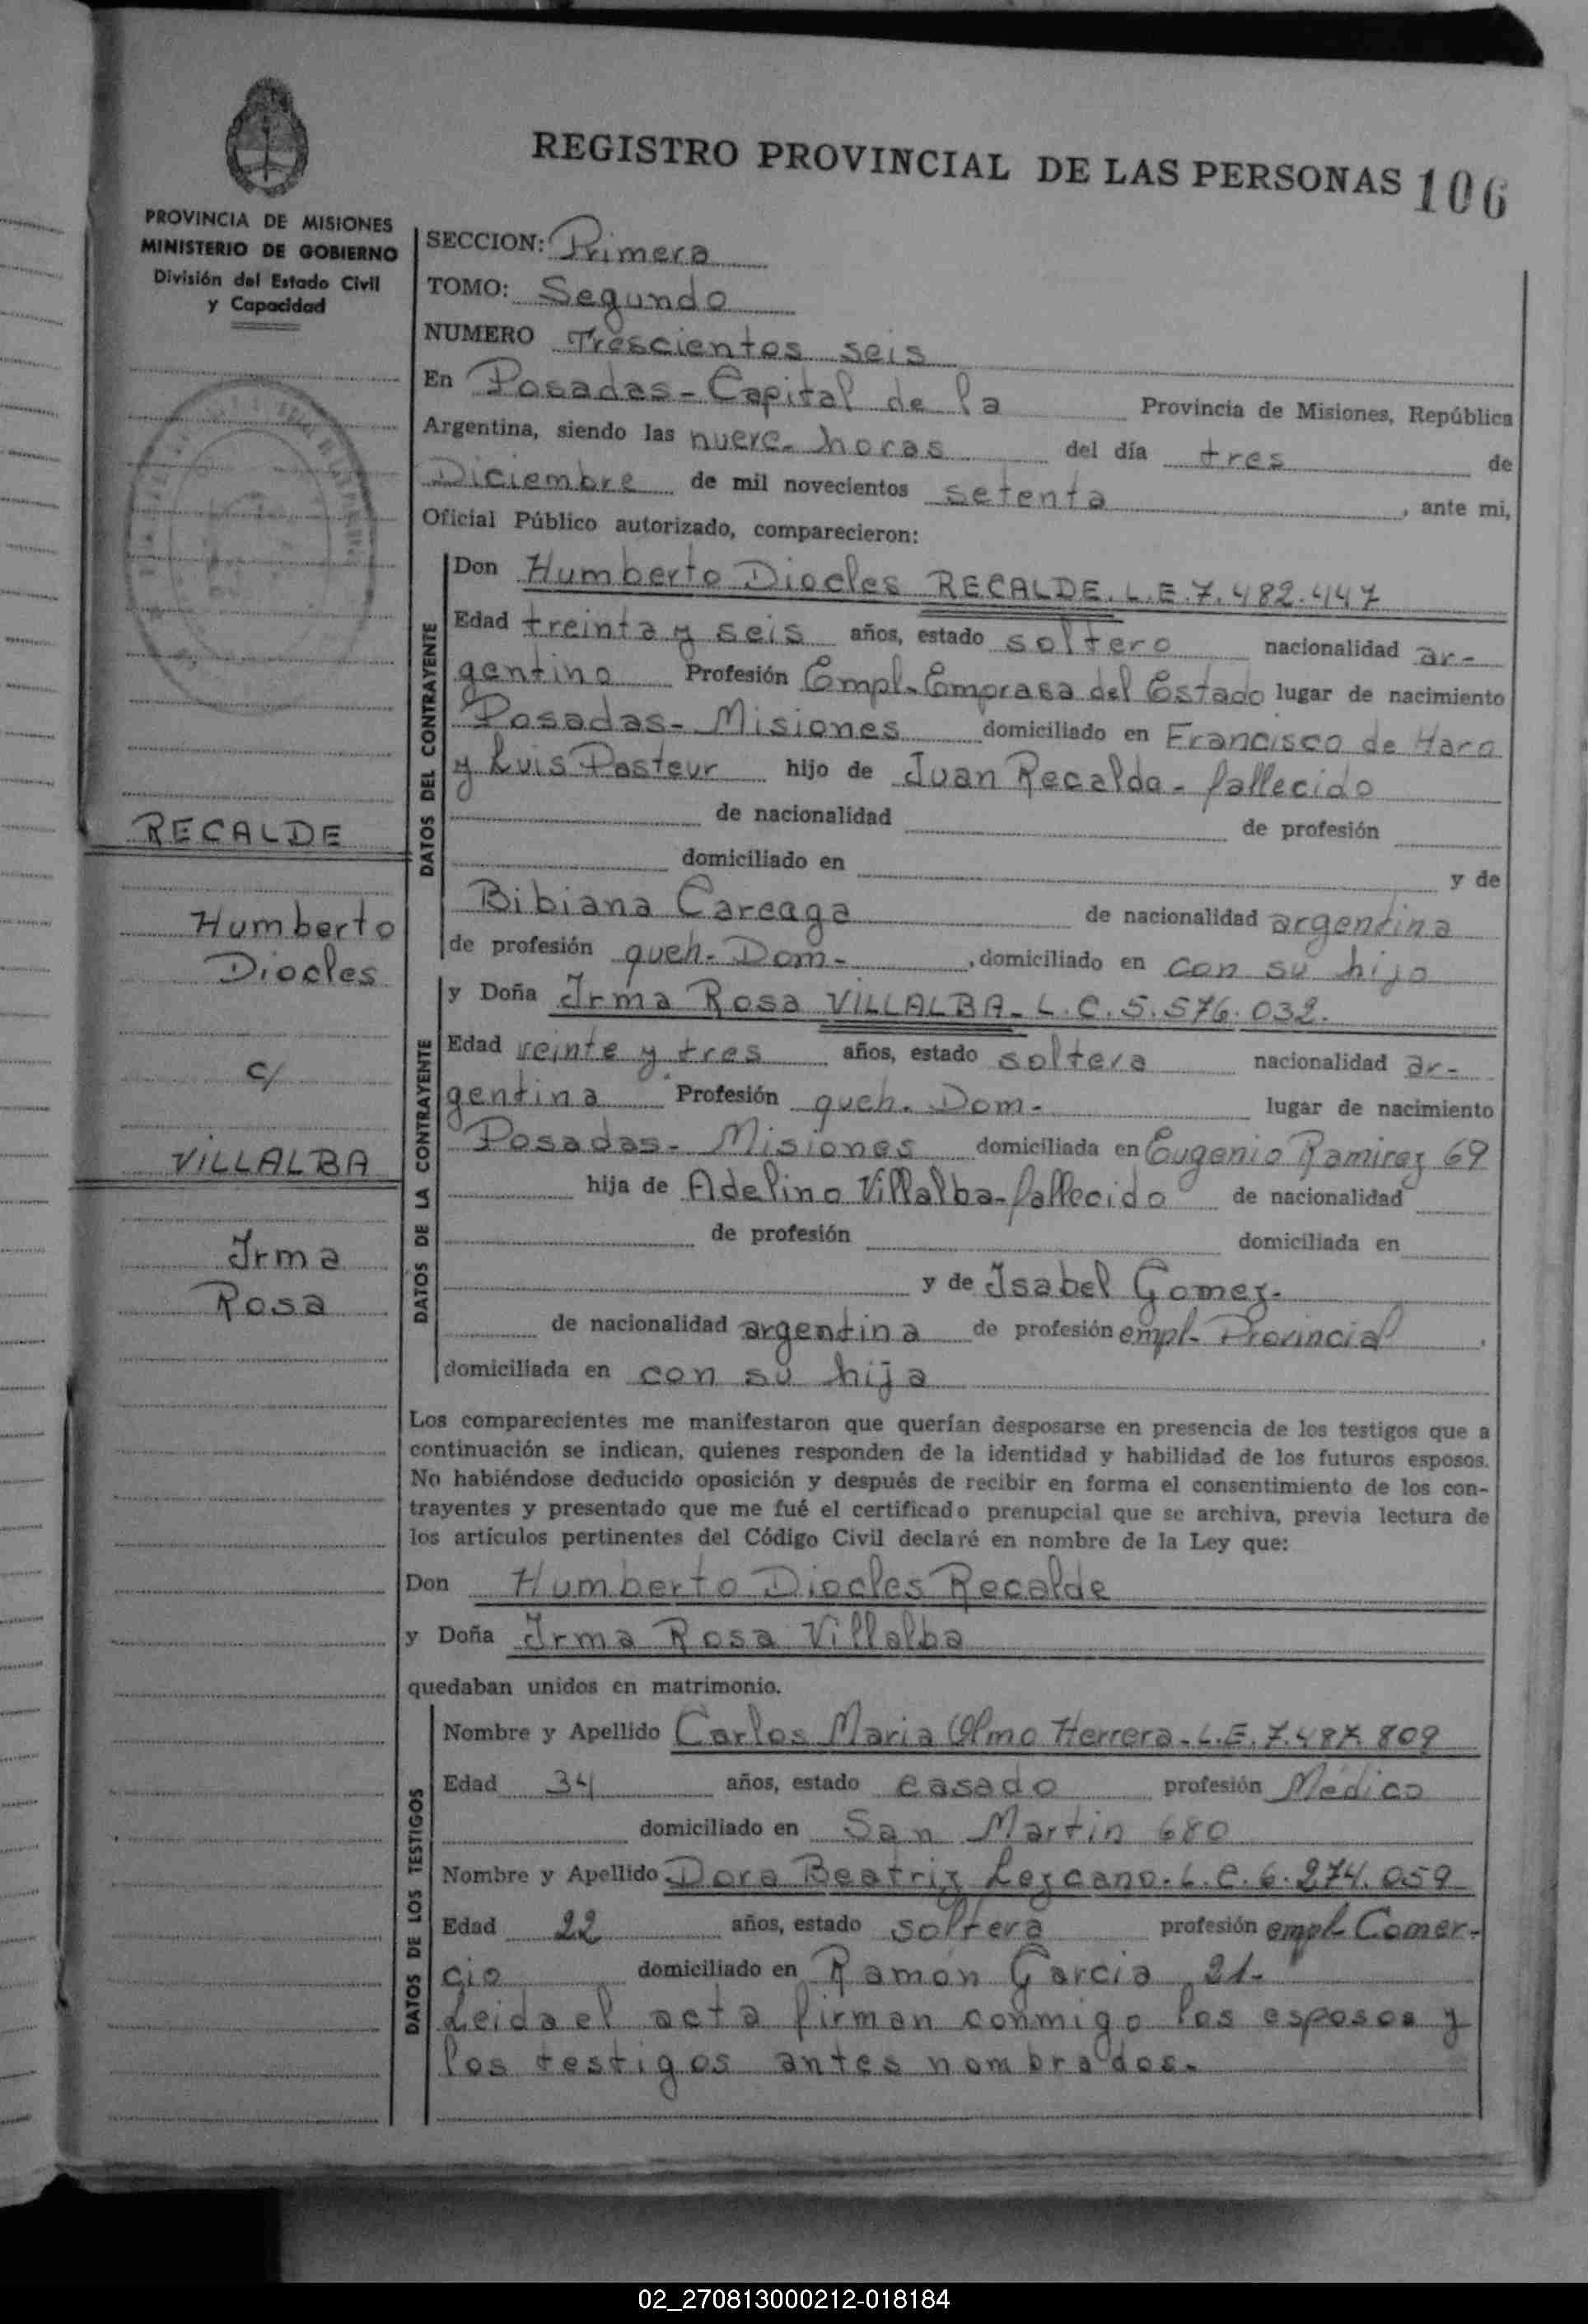 REGISTRO PROVINCIAL DE LAS PERSONAS 106
PROVINCIA DE MISIONES
MINISTERIO DE GOBIERNO
División del Estado Civil
y Capacidad
RECALDE
Humberto
Diocles
c/
VILLALBA
Irma
Rosa
SECCION: Primera
TOMO: Segundo
NUMERO Trescientos seis
En Posadas - Capital de la Provincia de Misiones, República
Argentina, siendo las nueve - horas del día tres de
Diciembre de mil novecientos setenta, ante mi,
Oficial Público autorizado, comparecieron:
DATOS DEL CONTRAYENTE
Don Humberto Diocles RECALDE. L.E. 7.482.447
Edad treinta y seis años, estado soltero nacionalidad ar-
gentino Profesión Empl. Empresa del Estado lugar de nacimiento
Posadas - Misiones domiciliado en Francisco de Haro
y Luis Pasteur hijo de Juan Recalde - fallecido
de nacionalidad de profesión
domiciliado en y de
Bibiana Careaga de nacionalidad argentina
de profesión queh. Dom -, domiciliado en con su hijo
DATOS DE LA CONTRAYENTE
y Doña Irma Rosa VILLALBA - L.C. 5.576.032.
Edad veinte y tres años, estado soltera nacionalidad ar-
gentina Profesión queh. Dom - lugar de nacimiento
Posadas - Misiones domiciliada en Eugenio Ramirez 69
hija de Adelino Villalba - fallecido de nacionalidad
de profesión domiciliada en
y de Isabel Gomez -
de nacionalidad argentina de profesión empl. Provincial
domiciliada en con su hija
Los comparecientes me manifestaron que querían desposarse en presencia de los testigos que a
continuación se indican, quienes responden de la identidad y habilidad de los futuros esposos.
No habiéndose deducido oposición y después de recibir en forma el consentimiento de los con-
trayentes y presentado que me fué el certificado prenupcial que se archiva, previa lectura de
los artículos pertinentes del Código Civil declaré en nombre de la Ley que:
Don Humberto Diocles Recalde
y Doña Irma Rosa Villalba
quedaban unidos en matrimonio.
DATOS DE LOS TESTIGOS
Nombre y Apellido Carlos Maria Olmo Herrera - L.E. 7.487.809
Edad 34 años, estado casado profesión Médico
domiciliado en San Martin 680
Nombre y Apellido Dora Beatriz Lezcano - L.C. 6.274.059
Edad 22 años, estado soltera profesión empl Comer-
cio domiciliado en Ramón Garcia 21 -
Leida el acta firman conmigo los esposos y
los testigos antes nombrados -
02_270813000212-018184